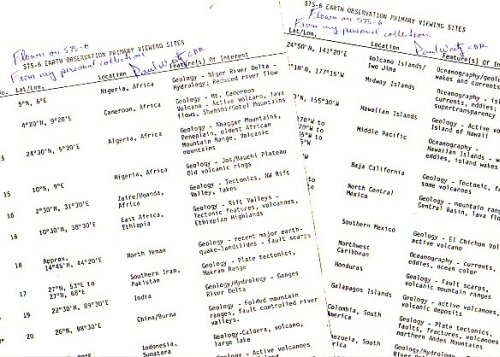 STS-6 EARTH OBSERVATION PRIMARY VIEWING SITES
Flown on STS-6
From my personal collection
Paul Weitz CDR
Lat/Lon. Location Feature(s) Of Interest
5°N, 6°E Nigeria, Africa Geology - Niger River Delta -
Hydrology: Reduced river flow
4°20'N, 9°20'E Cameroon, Africa Geology - Mt. Cameroon
Volcano - Active volcano, lava
flows, Shebshi/Gotel Mountains
24°30'N, 5°30'E Algeria, Africa Geology - Ahaggar Mountains,
Peneplain, eldest African
Mountain Range, Volcanic
mountains
15 10°N, 9°E Nigeria, Africa Geology - Jos/Bauchi Plateau
Old volcanic rings
16 2°30'N, 31°30'E Zaire/Uganda,
Africa Geology - Tectonics, NW Rift
Valleys, lakes
16 10°30'N, 38°30'E East Africa,
Ethiopia Geology - Rift Valleys -
Tectonic features, volcanoes,
Ethiopian Highlands
18 Approx.
14°45'N, 44°20'E North Yemen Geology - recent major earth-
quake-landslides - fault scarps
17 27°N, 53°E to
27°N, 68°E Southern Iran,
Pakistan Geology - Plate tectonics,
Makram Range
19 22°30'N, 89°30'E India Geology/Hydrology - Ganges
River Delta
20 26°N, 98°30'E China/Burma Geology - Folded mountain
ranges, fault controlled river
valleys.
Indonesia,
Sumatera Geology-Caldera, volcano,
large lake
Geology - Active volcano
STS-6 EARTH OBSERVATION PRIMARY VIEWING SITES
Flown on STS-6
From my personal collection
Paul Weitz CDR
Lat/Lon. Location Feature(s) Of Interest
24°50'N, 141°20'E Volcano Islands/
Iwo Jima Oceanography/geology
wakes and currents
10'N, 177°15'W Midway Islands Oceanography -
currents, eddies;
supertransparency
155°30'W Hawaiian Islands Geology - Active vol
Island of Hawaii
Middle Pacific Oceanography -
Hawaiian Islands - w
eddies, island wakes
Baja California Geology - Tectonic, fa
some volcanoes
North Central
Mexico Geology - mountain rang
Central Basin, lava fl
Southern Mexico Geology - El Chichon Vol
active volcano
Northwest
Caribbean Oceanography - currents,
eddies, ocean color
Honduras Geology - Fault scarps,
volcanic mountain ranges
Galapagos Islands Geology - active volcanoes
volcanic deposits
Colombia, South
America Geology - Plate tectonics,
faults, fractures, volcanoes
northern Andes Mountains
Venezuela, South